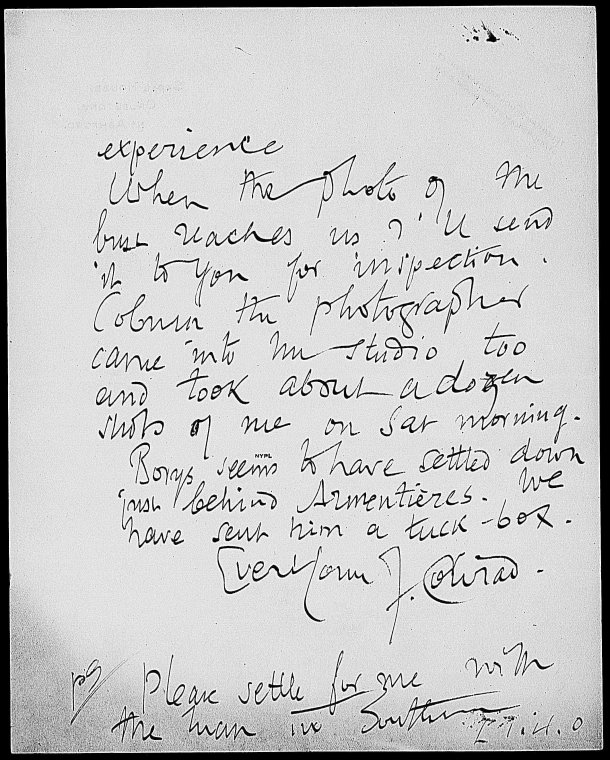 experience
When the photo of the
bust reaches us I'll send
it to You for inspection.
Coburn the photographer
came into the studio too
and took about a dozen
shots of me on Sat morning.
NYPL
Borys seems to have settled down
just behind Armentières. We
have sent him a tuck-box.
Ever Yours J. Conrad.
PS Please settle for me with
the man in